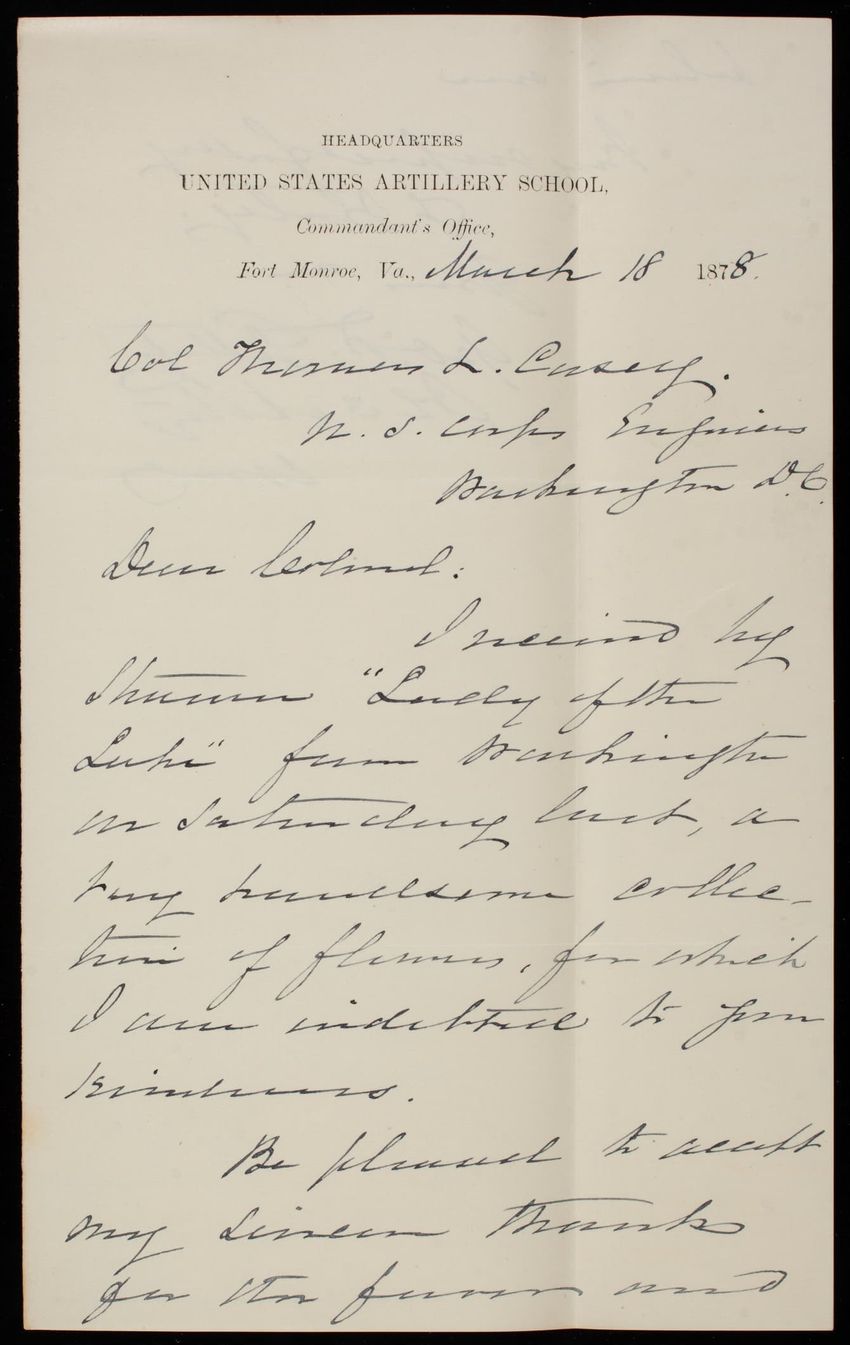 HEADQUARTERS
UNITED STATES ARTILLERY SCHOOL,
Commandant's Office,
Fort Monroe, Va., March 18 1878.
Col Thomas L. Casey.
U. S. Corps Engineers
Washington D.C.
Dear Colonel:
I received by
Steamer "Lady of the
Lake" from Washington
on Saturday last, a
very handsome collec-
tion of flowers, for which
I am indebted to your
kindness.
Be pleased to accept
my sincere thanks
for the favor and